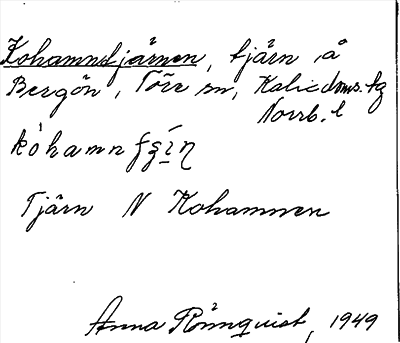 Kohamntjärnen, tjärn å
Bergön, Töre sn, Kalix doms. tg
Norrb. l
Tjärn N Kohamnen
Anna Rönnquist, 1949